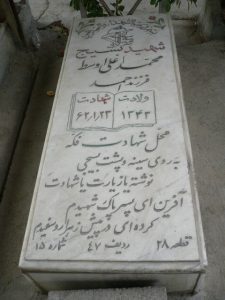 شهید بسیج
محمد علی وسط
فرزند احمد
ولادت شهادت
۱۳۴۳ ۶۲/۱/۲۳
محل شهادت فکه
به روی سینه و پشت بسیجی
نوشته یا زیارت یا شهادت
آفرین ای پسر پاک شهیدم
کرده‌ای در پیش زهرا رو سفیدم
قطعه ۲۸ ردیف ۴۷ شماره ۱۵